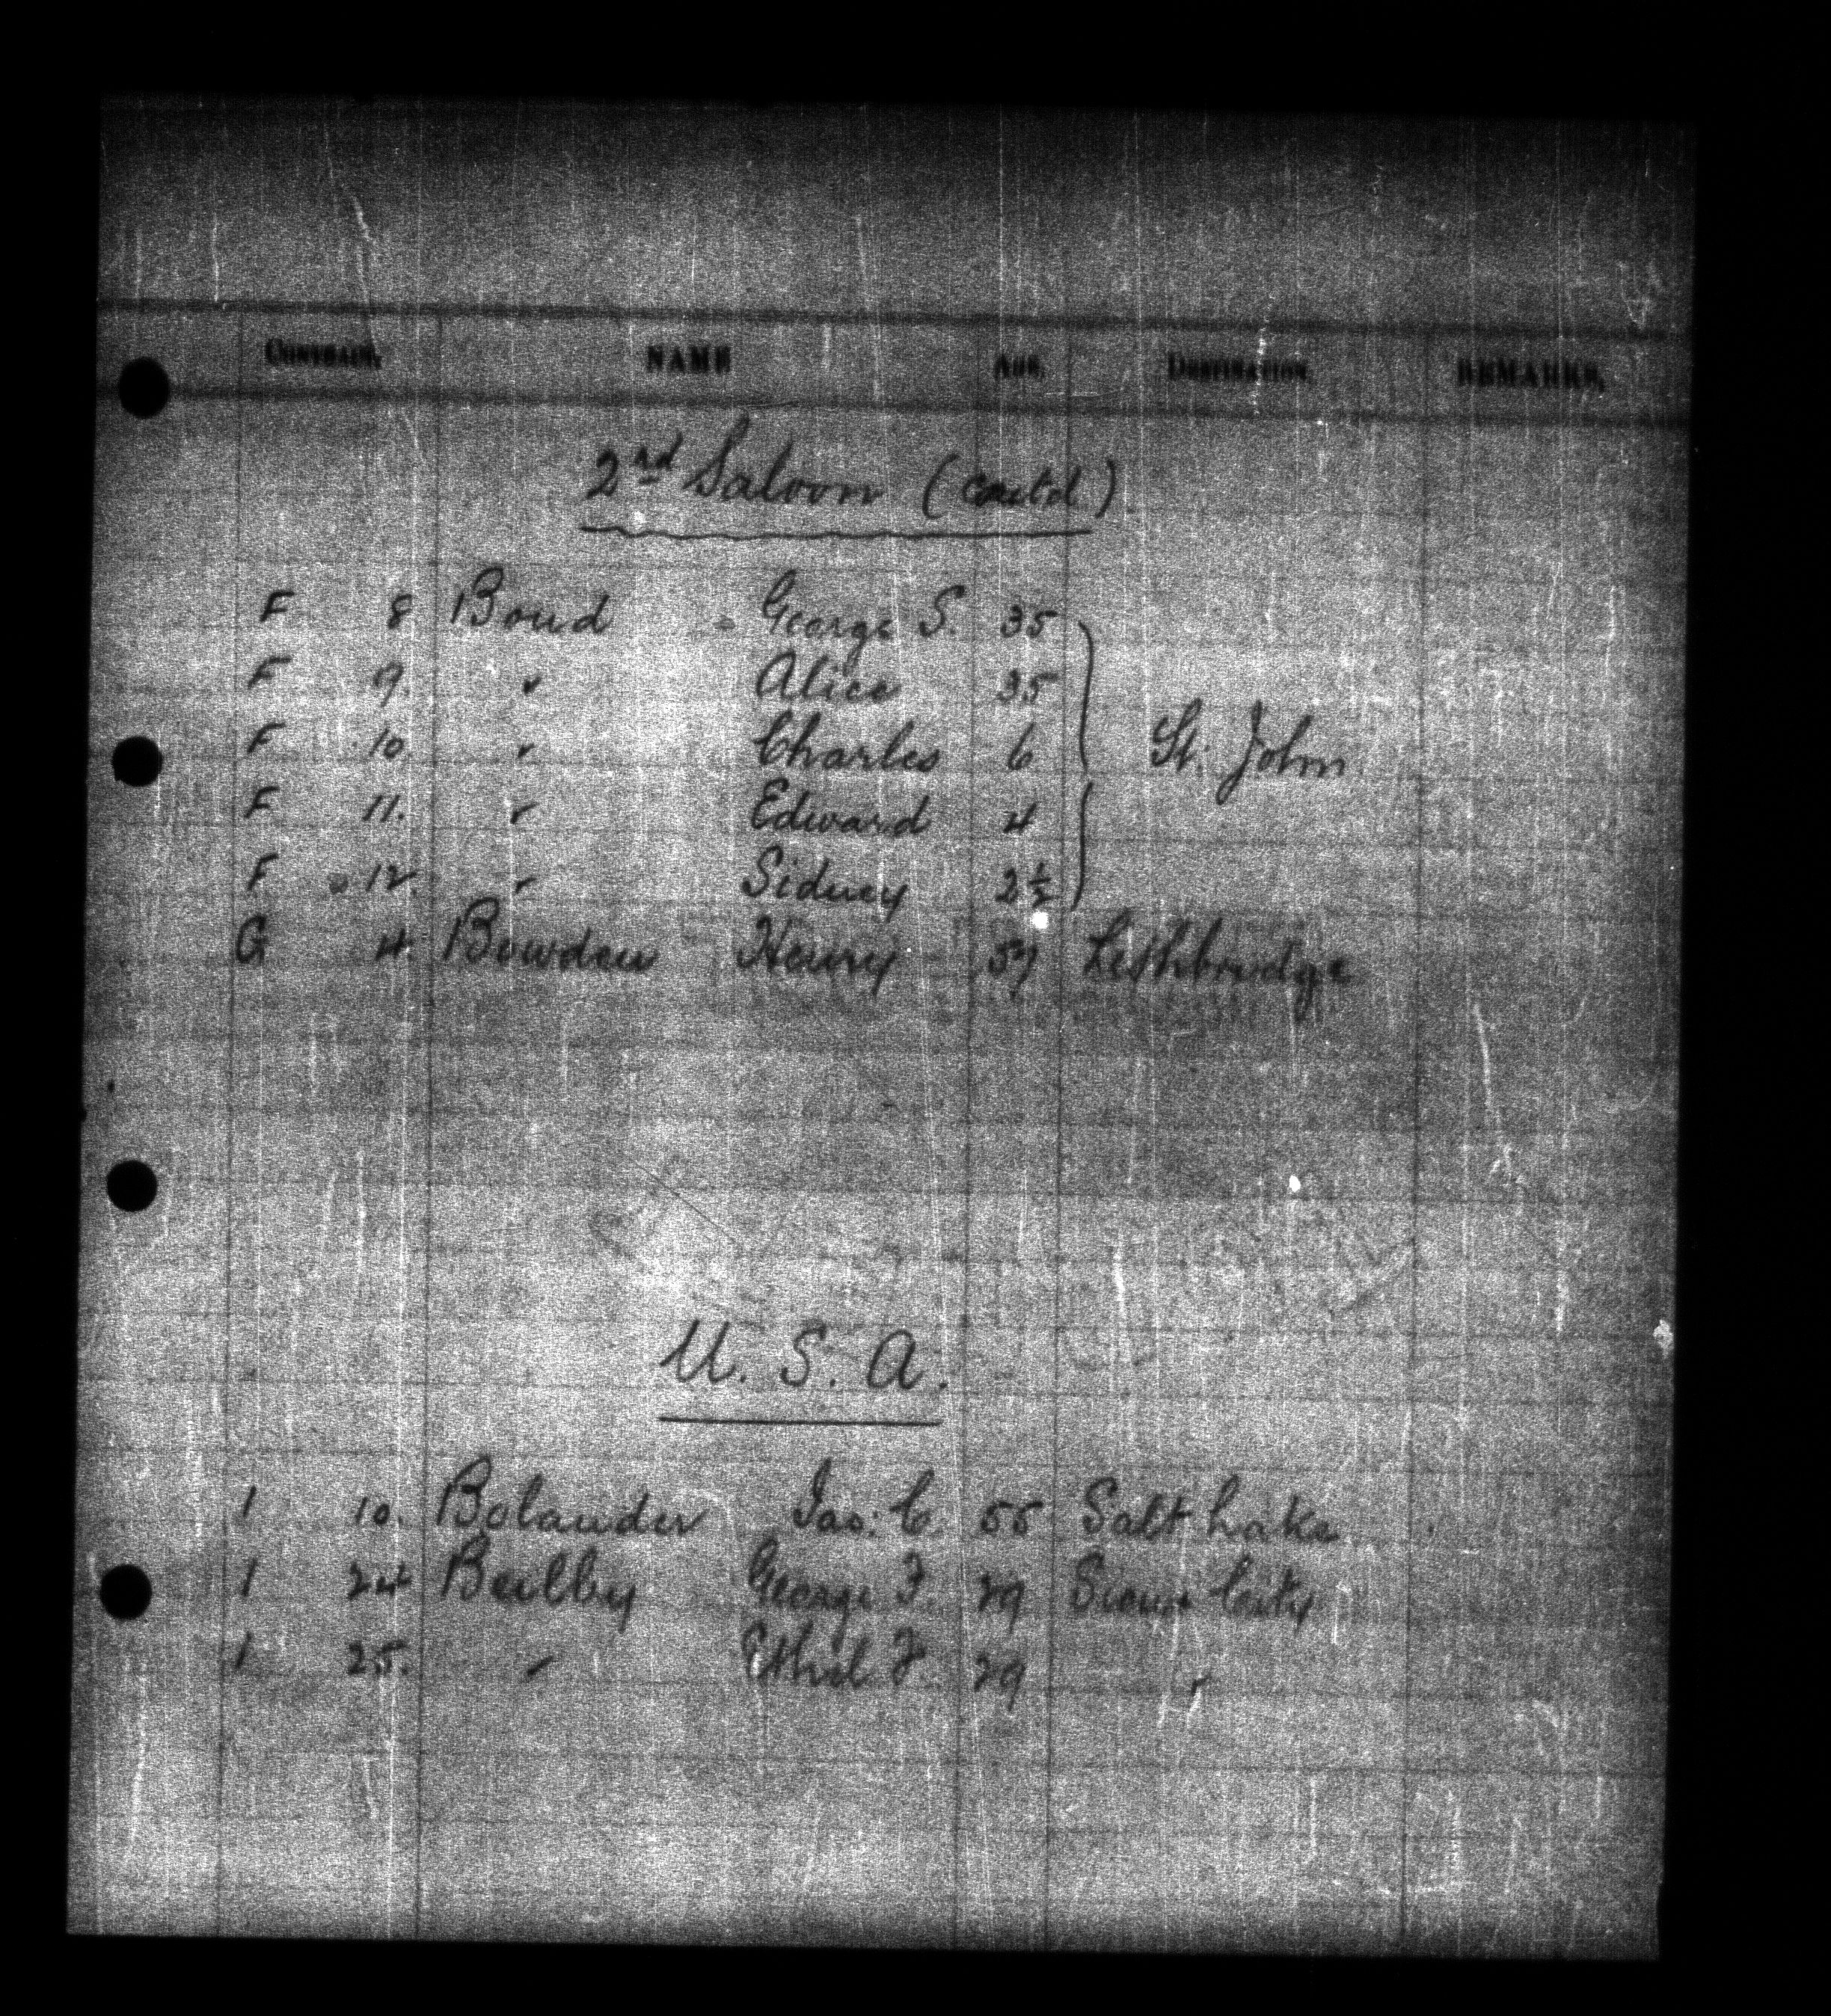 CONTRACT. NAME AGE. DESTINATION. REMARKS.
2nd Saloon (contd.)
F 8 Bond - George S. 35
F 9. " Alice 35
F 10. " Charles 6 St. John
F 11. " Edward 4
F 12. " Sidney 2½
G 4. Bowden Henry 57 Lethbridge
U. S. A.
1 10. Bolander Jas: C. 55 Salt Lake
1 24 Beilby George F. 29 Sioux City
1 25. " Ethel F. 29 "